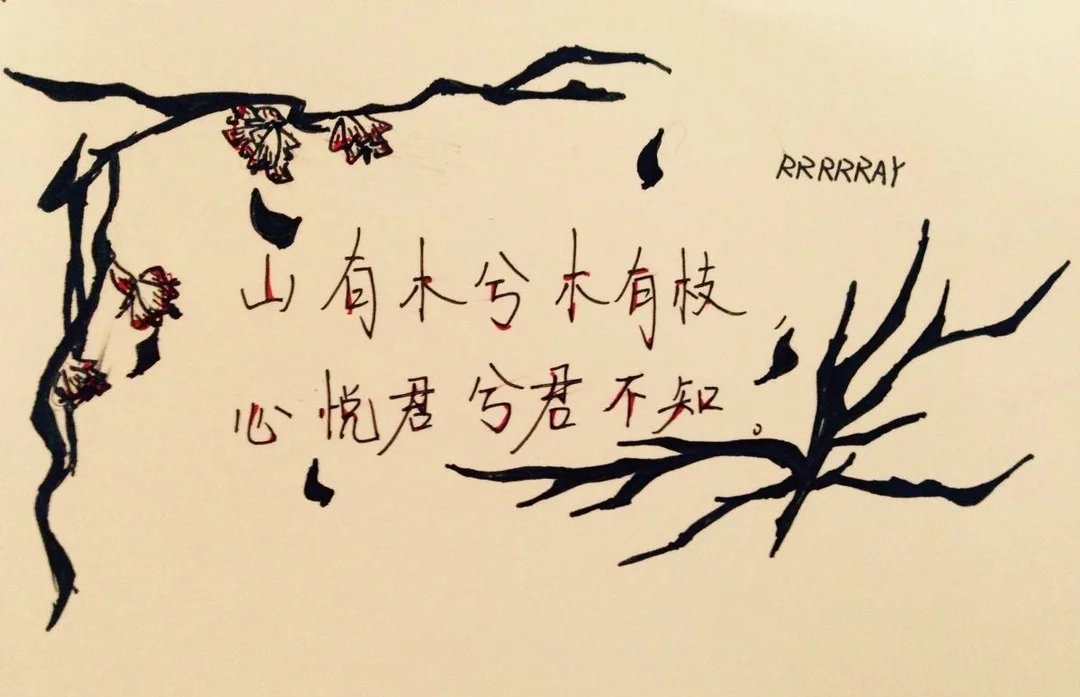 RRRRRAY
山有木兮木有枝，
心悦君兮君不知。